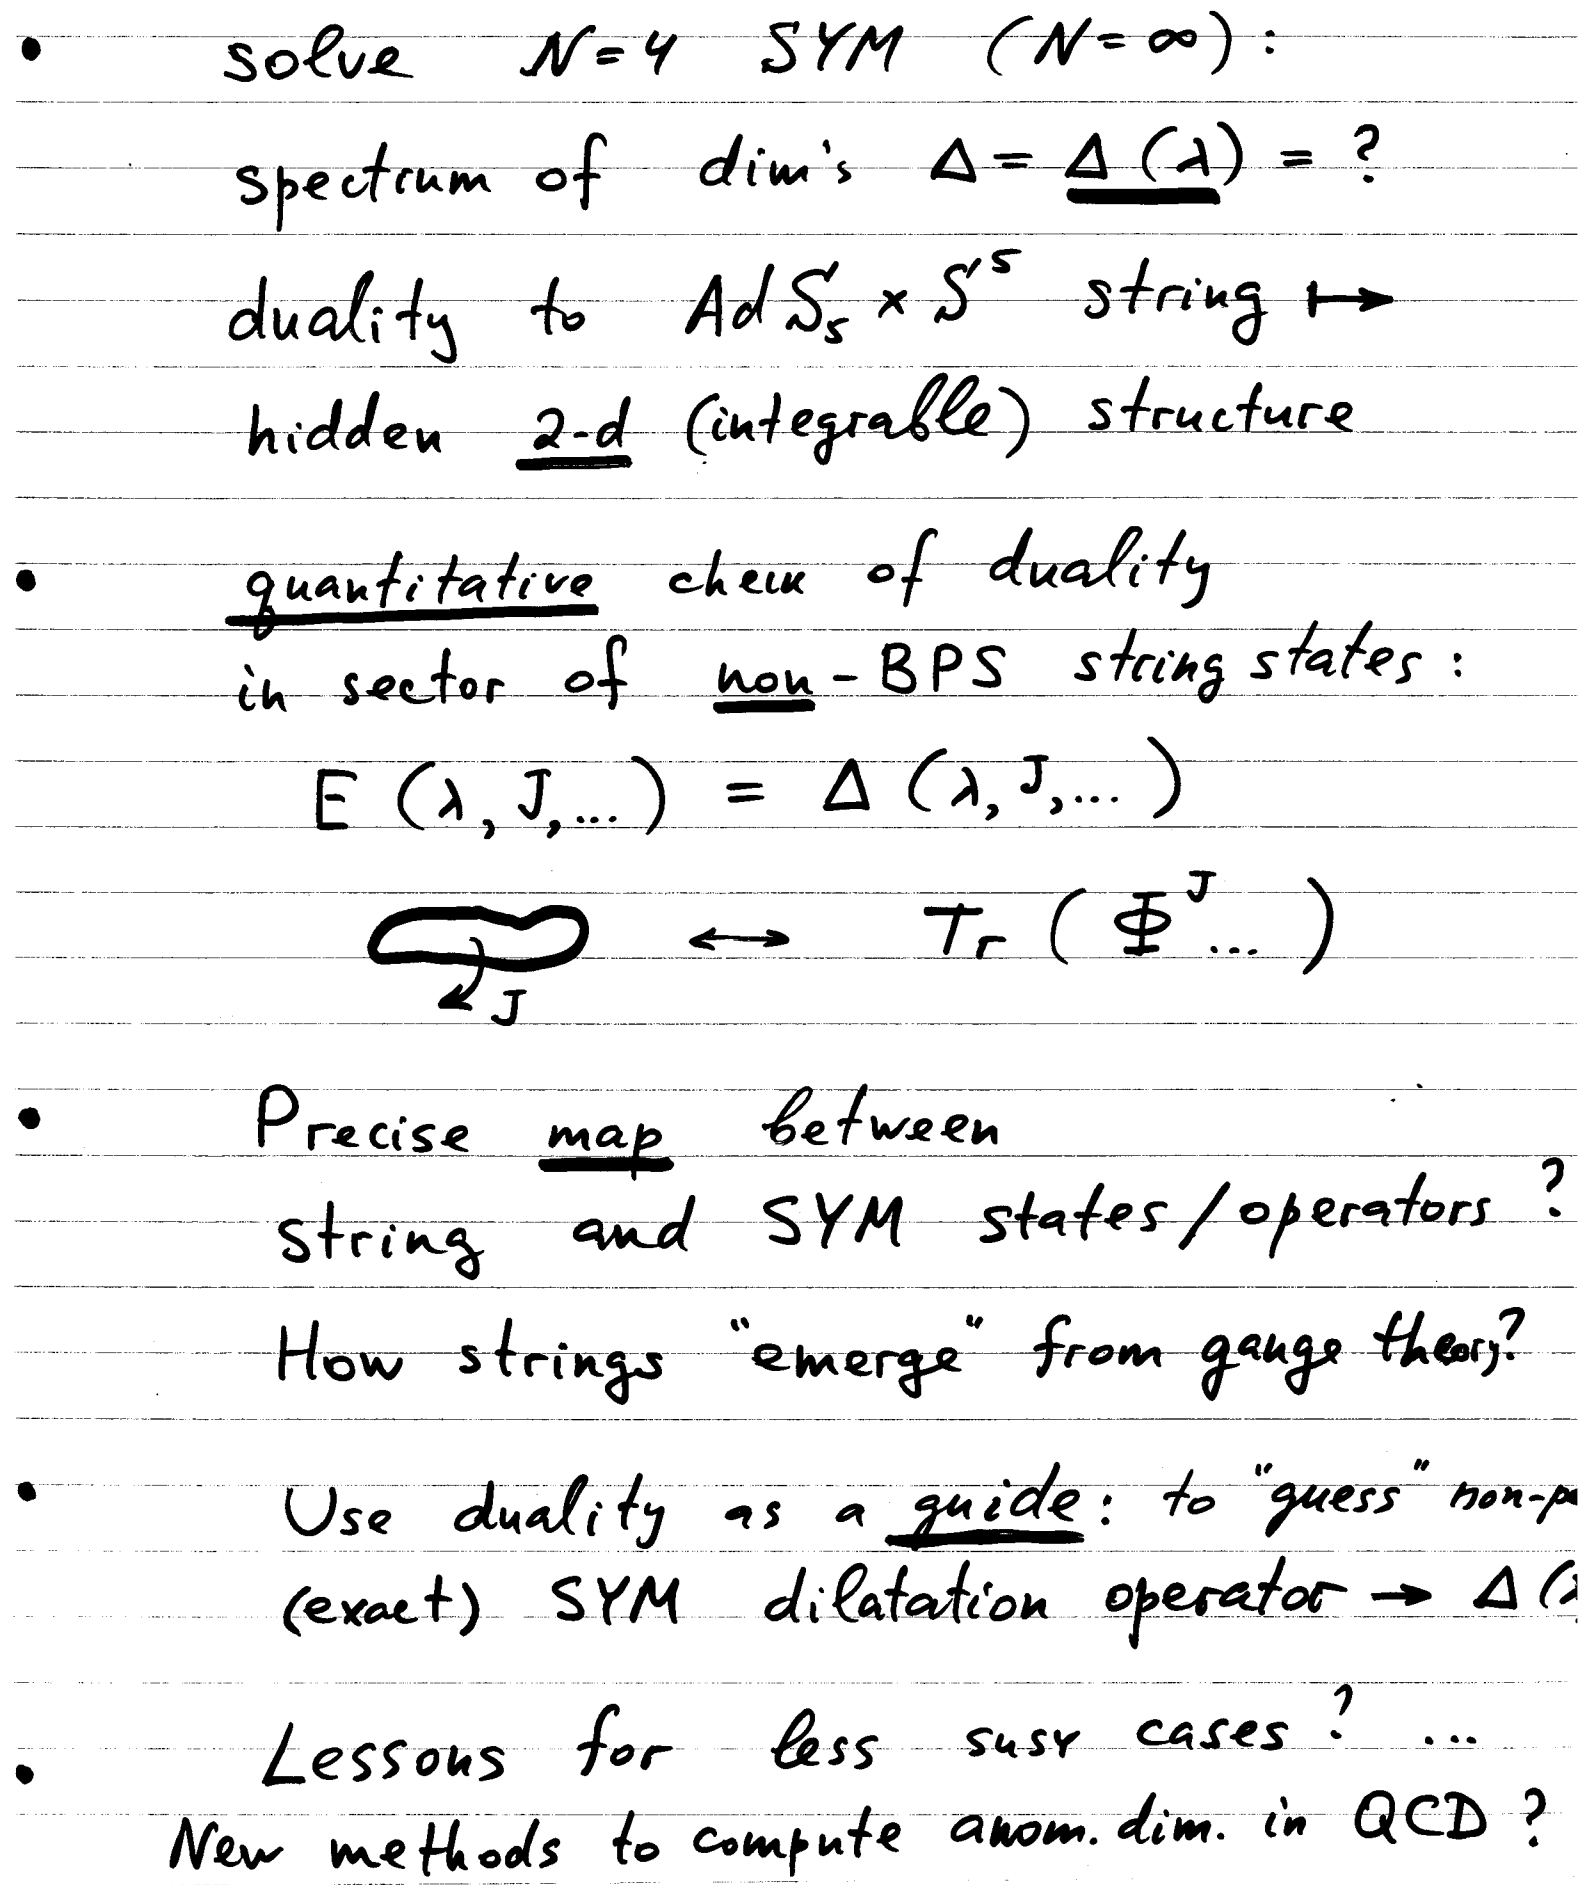 • solve N=4 SYM (N=∞):
spectrum of dim's Δ = Δ(λ) = ?
duality to AdS₅ × S⁵ string ↦
hidden 2-d (integrable) structure
• quantitative check of duality
in sector of non-BPS string states:
E (λ, J,...) = Δ (λ, J,...)
↔ Tr ( Φᴶ ... )
J
• Precise map between
string and SYM states/operators ?
How strings "emerge" from gauge theory?
• Use duality as a guide: to "guess" non-p
(exact) SYM dilatation operator → Δ (λ
• Lessons for less susy cases? ...
New methods to compute anom. dim. in QCD ?